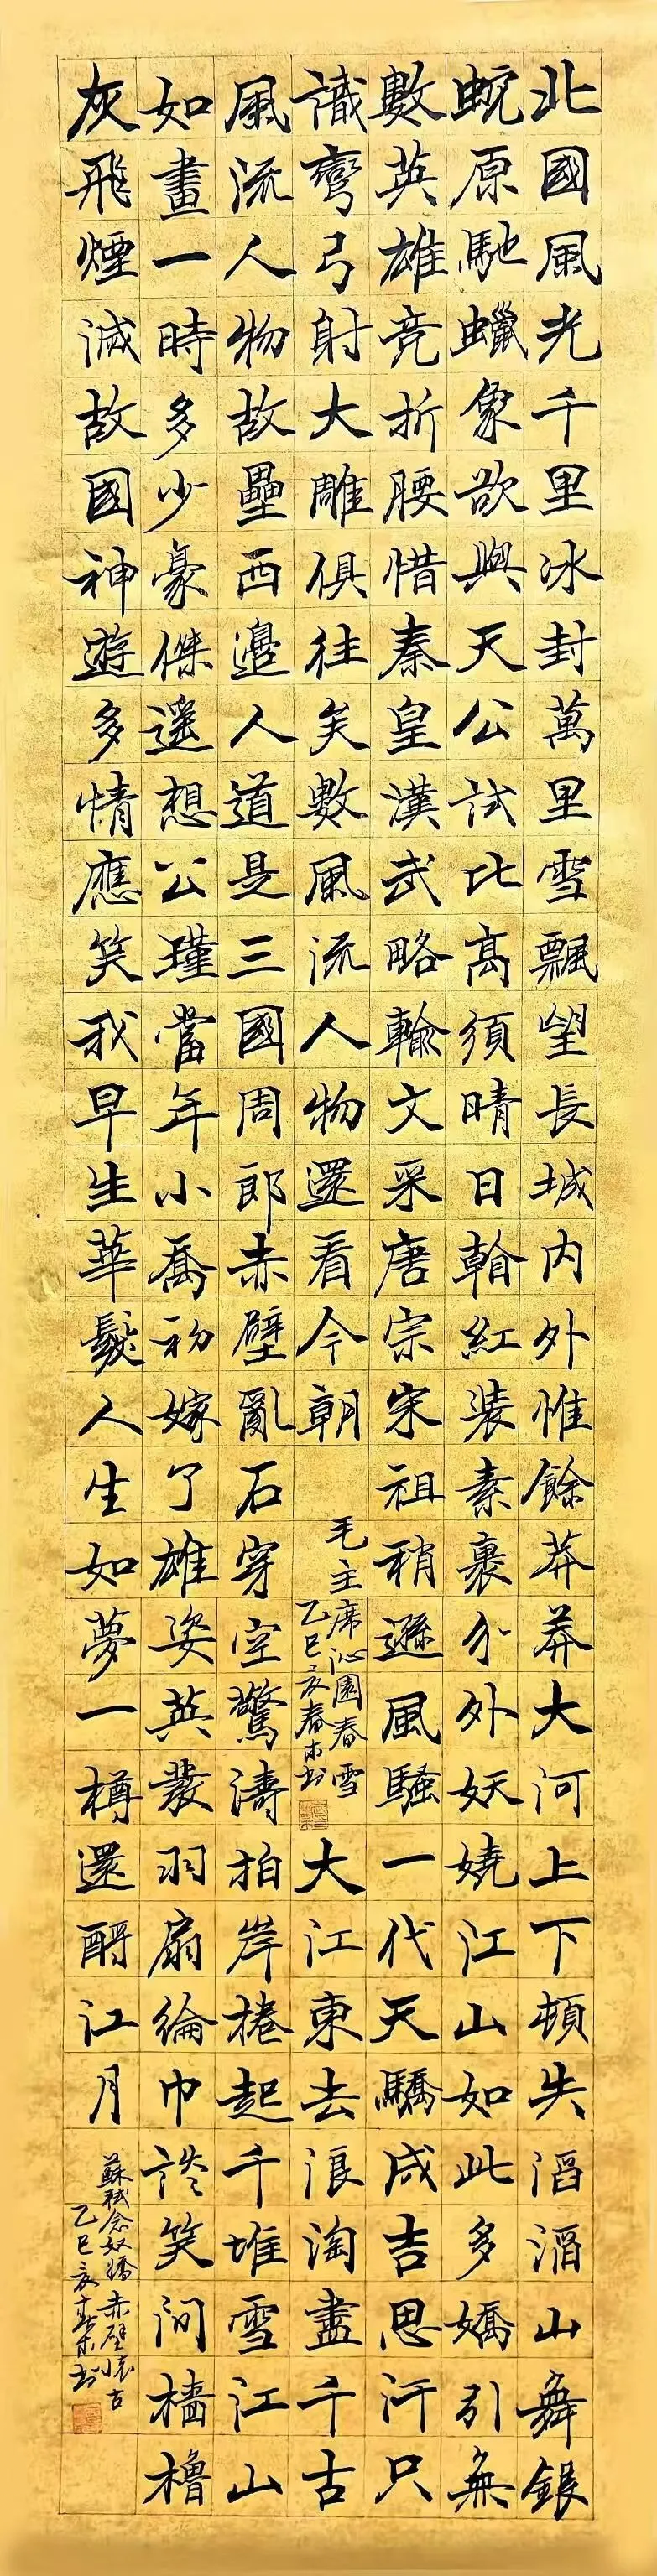 北國風光千里冰封萬里雪飄望長城内外惟餘莽莽大河上下頓失滔滔山舞銀
蛇原馳蠟象欲與天公試比高須晴日翰紅裝素裹分外妖嬈江山如此多嬌引無
數英雄竞折腰惜秦皇漢武略輸文采唐宗宋祖稍遜風騷一代天驕成吉思汗只
識彎弓射大雕俱往矣數風流人物還看今朝
毛主席沁園春雪
乙巳亥春書
大江東去浪淘盡千古
風流人物故壘西邊人道是三國周郎赤壁亂石穿空驚濤拍岸捲起千堆雪江山
如畫一時多少豪傑遙想公瑾當年小喬初嫁了雄姿英發羽扇綸巾談笑間檣櫓
灰飛煙滅故國神遊多情應笑我早生華髮人生如夢一樽還酹江月
蘇軾念奴嬌赤壁懷古
乙巳亥春書